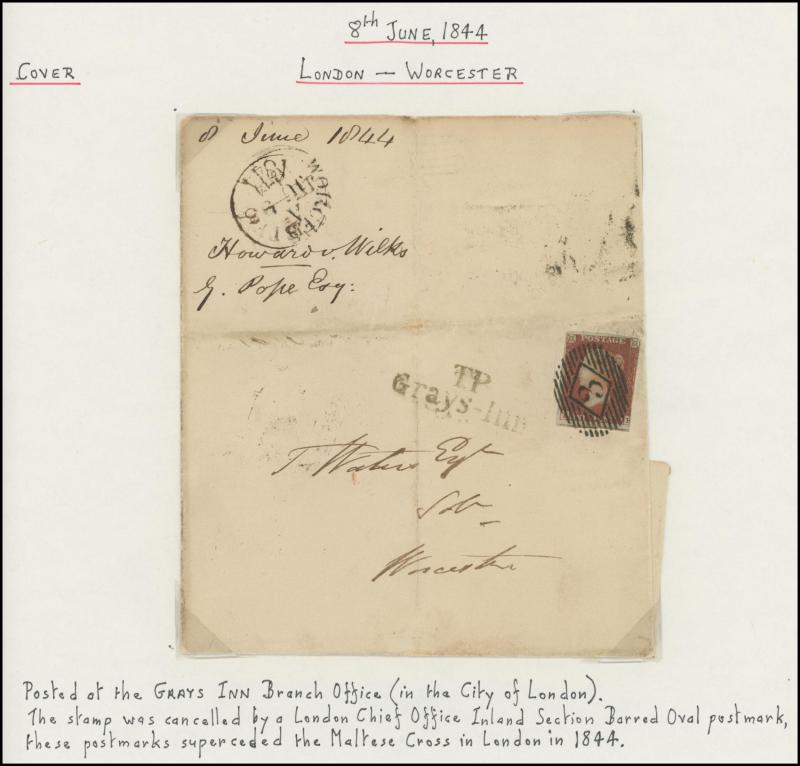 8th JUNE, 1844
COVER
LONDON — WORCESTER
8 June 1844
WORCESTER
Howard v. Wilks
G. Pope Esq:
POSTAGE
3
TP
Grays-Inn
T Waters Esqr
Solr
Worcester
POSTED at the GRAYS INN Branch Office (in the City of London).
The stamp was cancelled by a London Chief Office Inland Section Barred Oval postmark,
these postmarks superceded the Maltese Cross in London in 1844.